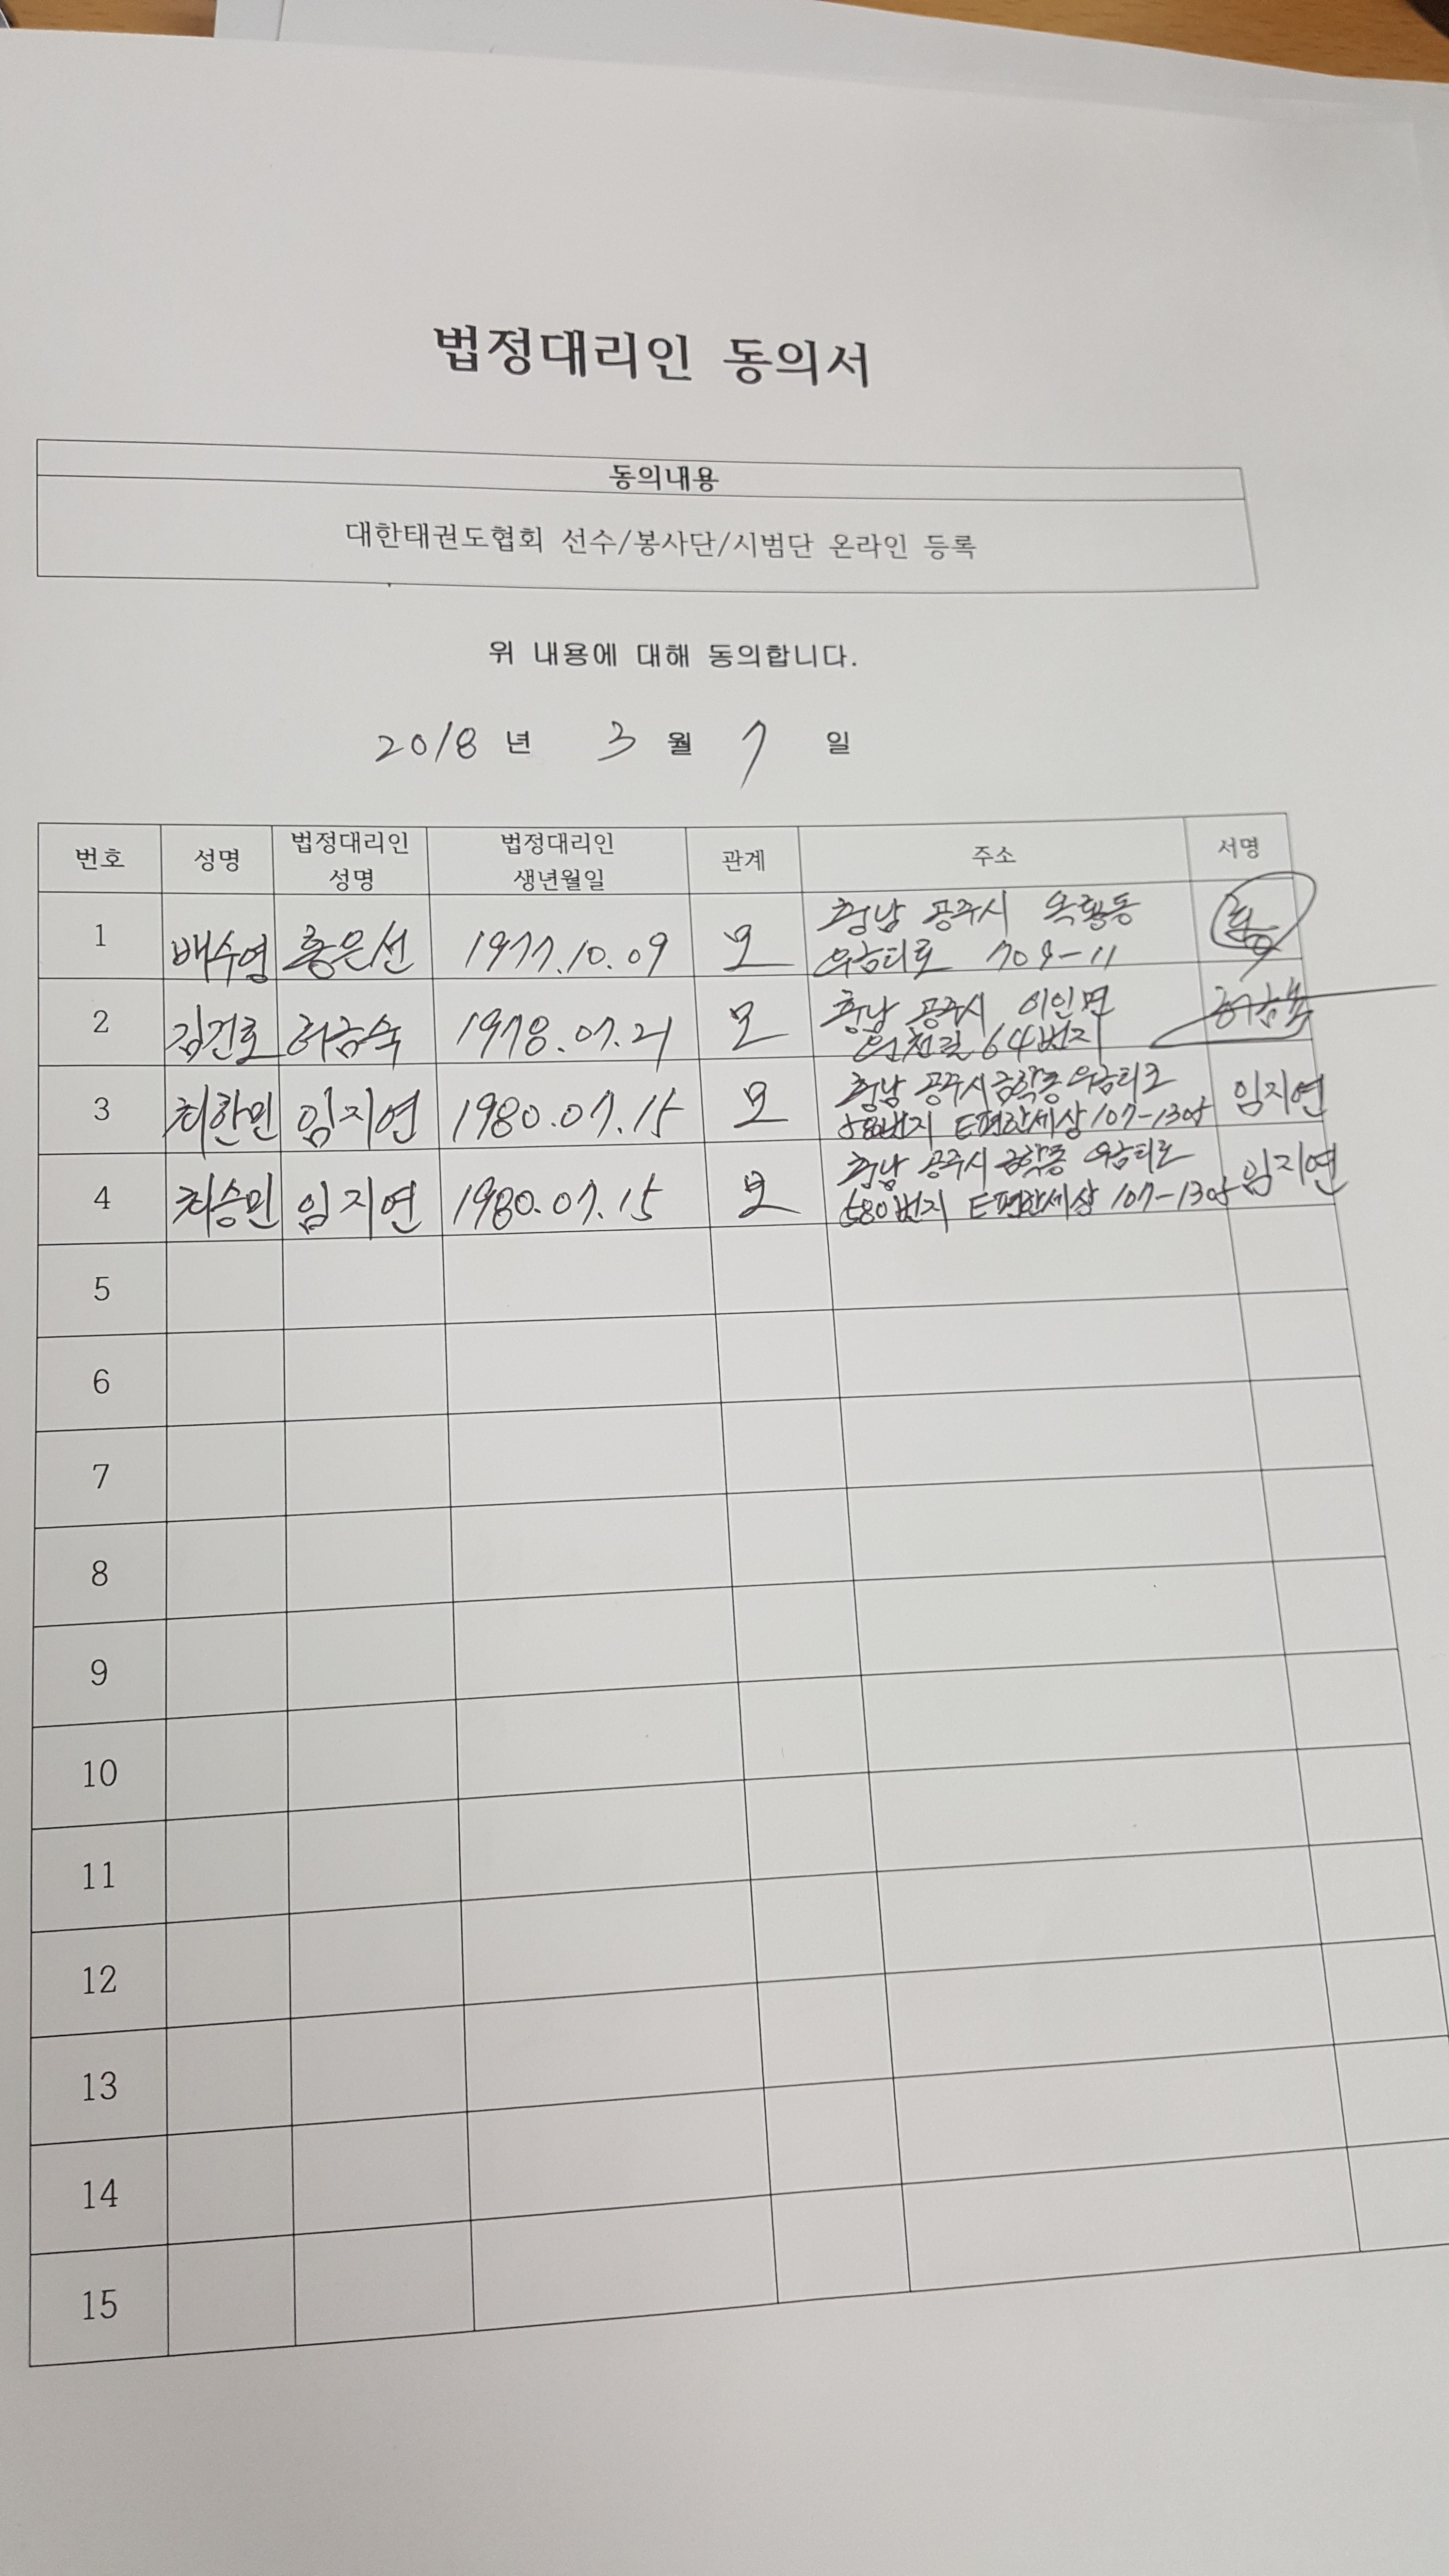 법정대리인 동의서
동의내용
대한태권도협회 선수/봉사단/시범단 온라인 등록
위 내용에 대해 동의합니다.
2018 년 3 월 7 일
번호 성명 법정대리인 성명 법정대리인 생년월일 관계 주소 서명
1 배수영 홍은선 1977.10.09 모 충남 공주시 옥룡동
우금티로 709-11
2 김건호 허금숙 1978.07.21 모 충남 공주시 이인면 허금숙
64번지
3 최한민 임지연 1980.07.15 모 충남 공주시 금학동 우금티로 임지연
580번지 E편한세상 107-1305
4 최승민 임지연 1980.07.15 모 충남 공주시 금학동 우금티로 임지연
580번지 E편한세상 107-1305
5
6
7
8
9
10
11
12
13
14
15